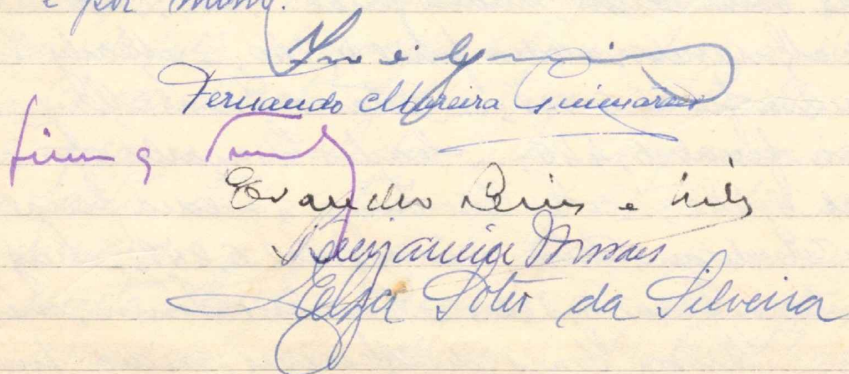 e por mim.
Fernando Moreira Guimarães
Evandro Lins e Silva
Benjamin Moraes
Elza Soter da Silveira